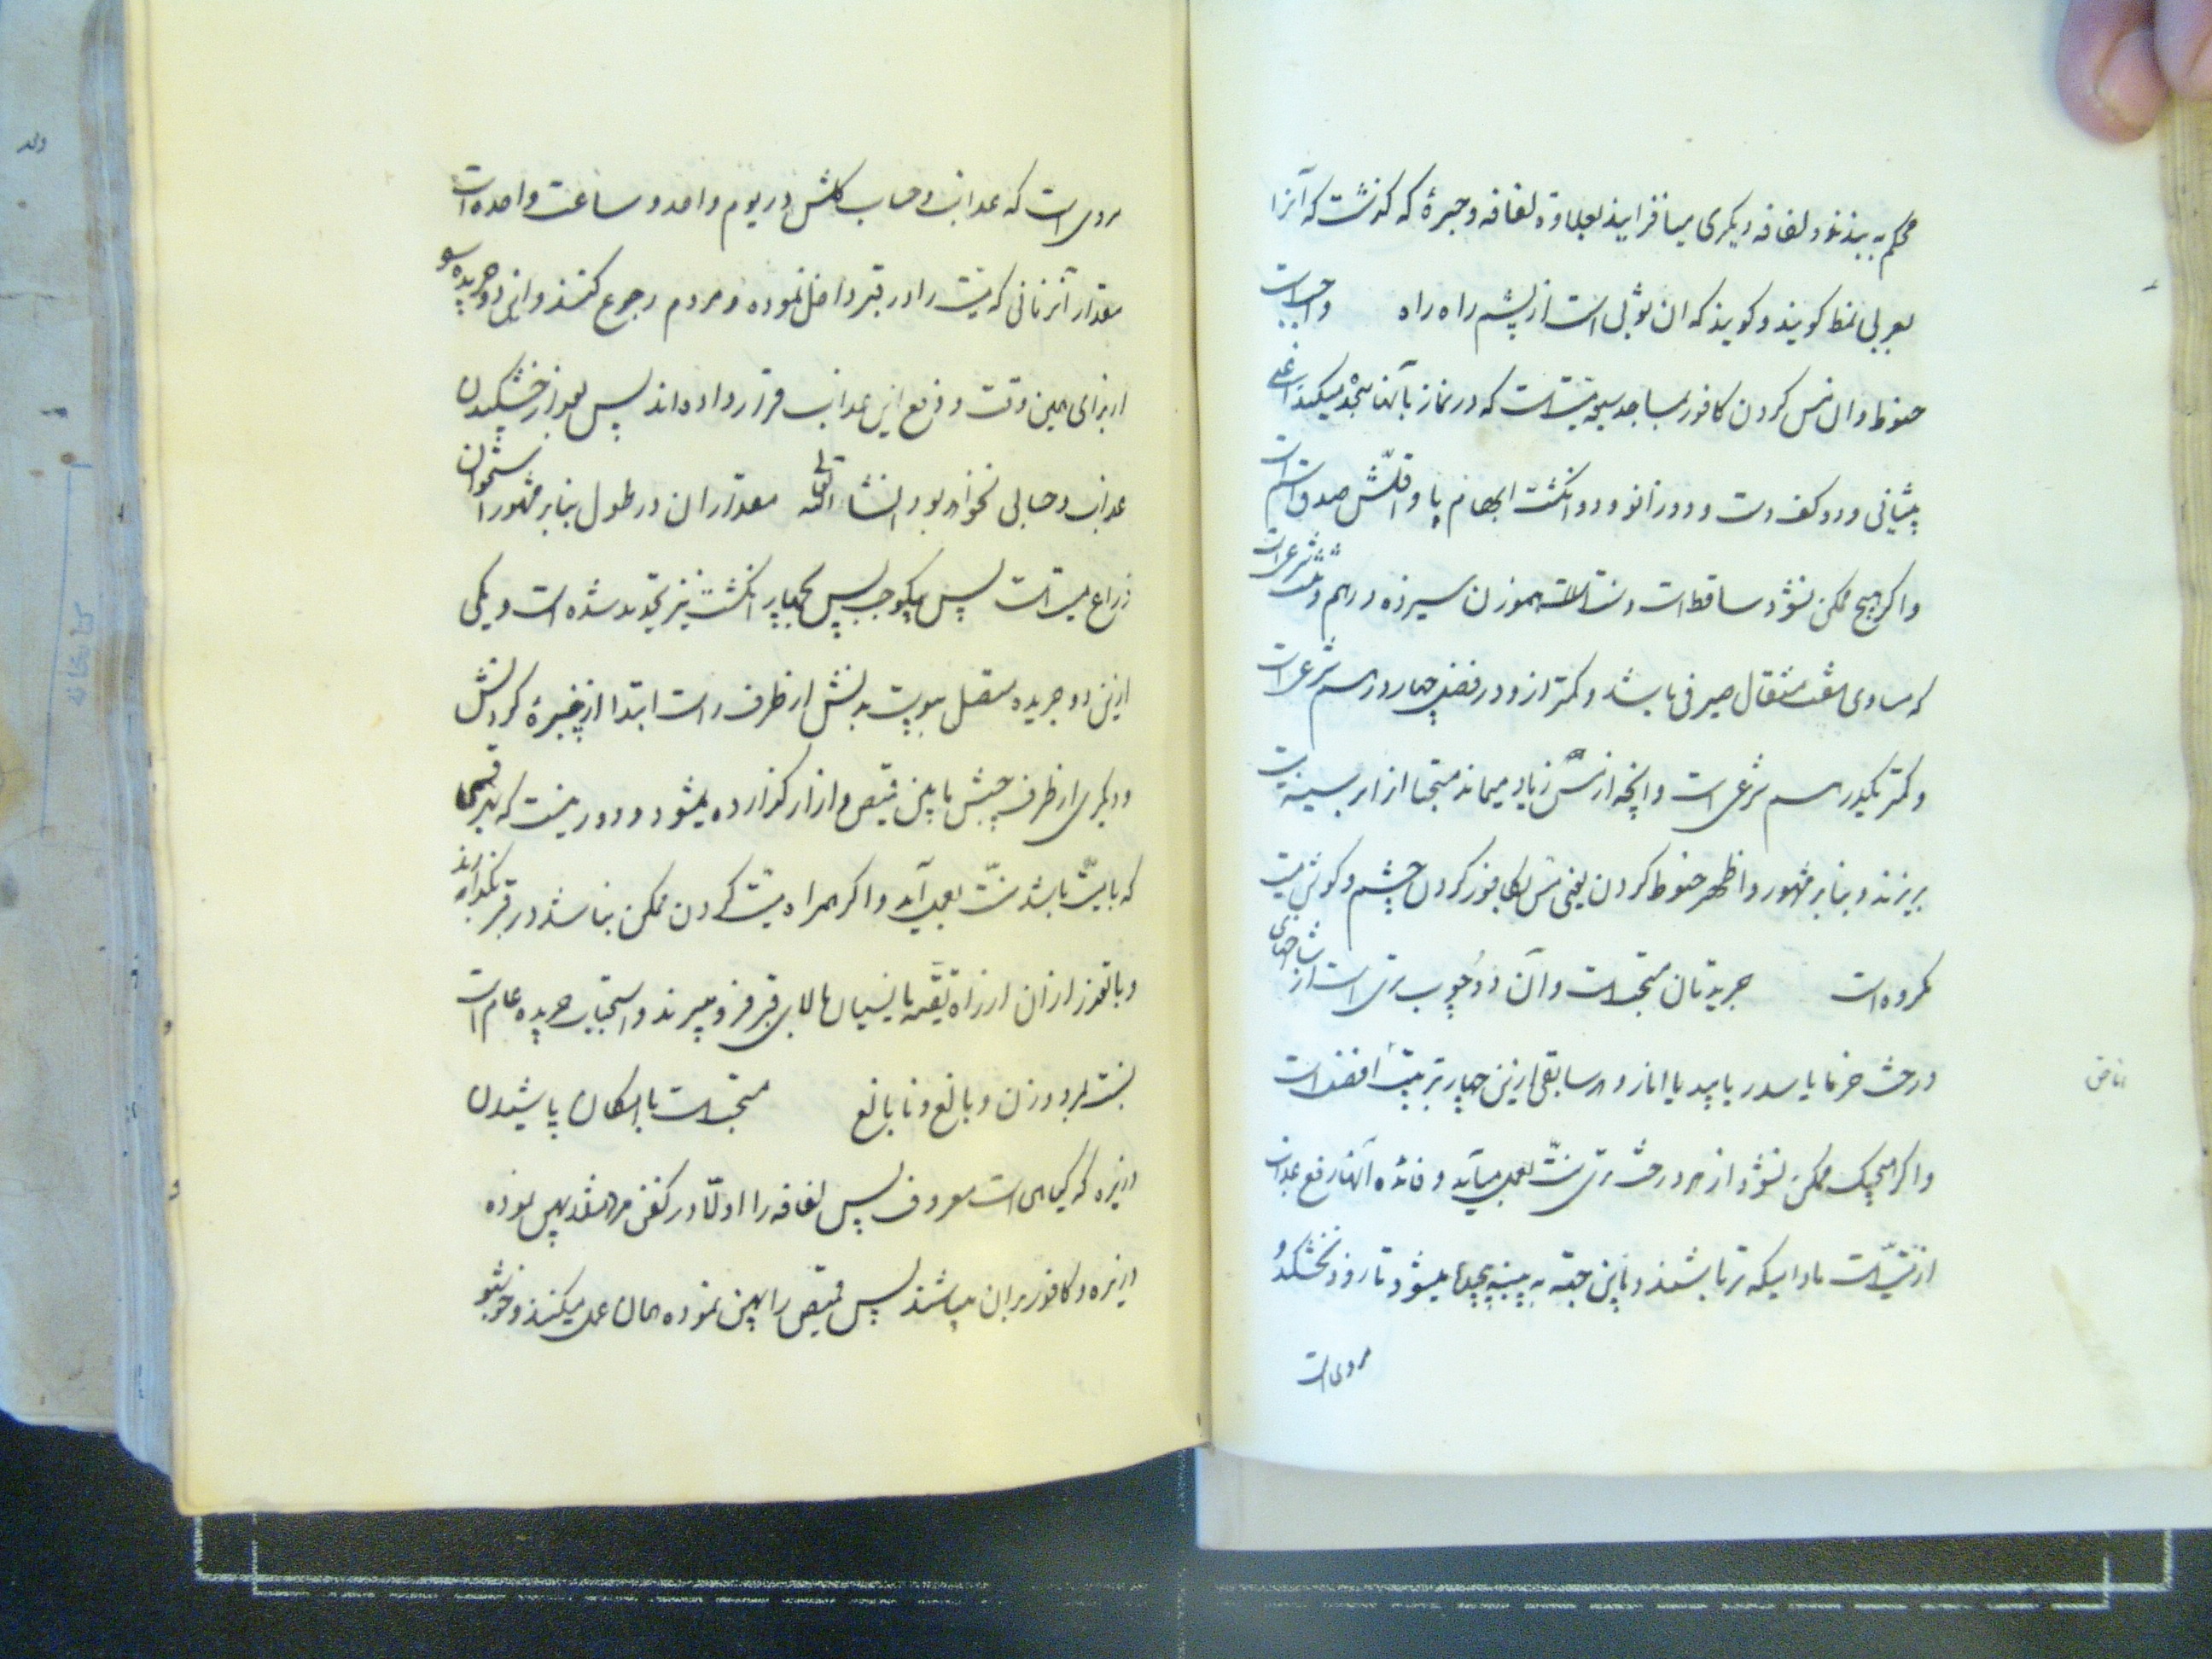 محکم به بندند و لفافه دیکری میافزایند بعلاوه لفافه و حبرهٔ که کذشت که آنرا
بعربی نمط کویند و کویند که ان ثوبی است از پشم راه راه واجبست
حنوط و ان مس کردن کافور بمساجد سبعه میتست که در نماز بآنها سجده میکند اعنی
پیشانی و دو کف دست و دو زانو و دو انکشت ابهام پا و اقلّش صدق اسم است
و اکر هیچ ممکن نشود ساقط است و سنت است بوزن سیزده درهم و ثلث شرعی است
که مساوی هفت مثقال صیرفی باشد و کمتر ازو در فضل چهار درهم شرعی است
و کمتر یکدرهم شرعی است و انچه از مس زیاد میماند مستحبا از ابر سینه میت
بریزند و بنابر مشهور و اظهر حنوط کردن یعنی مس بکافور کردن چشم و کوش میت
مکروه است جریدتان مستحبست و آن دو چوب تری است از شاخهای
درخت خرما یا سدر یا بید یا انار و هر سابقی ازین چهار بترتیب افضل است
و اکر هیچیک ممکن نشود از هر درخت تری سنّت بعمل میآید و فائده آنها رفع عذاب
از میّتست مادامیکه تر باشند و باین جهة به پنبه پیچیده میشود تا زود نخشکد و
مروی است
مروی است که عذاب و حساب کلش در یوم واحد و ساعت واحده است
مقدار آنزمانی که میت را در قبر داخل نموده و مردم رجوع کنند و این دو جریده
از برای همین وقت و رفع این عذاب قرار داده اند پس بعد از خشکیدن
عذاب و حسابی نخواهد بود انشاء الله تعالی مقدار ان در طول بنابر مشهور استخوان
ذراع میتست پس یکوجب پس بچهار انکشت نیز تحدید شده است و یکی
ازین دو جریده متصل بپوست بدنش از طرف راست ابتدا از چنبرهٔ کردنش
و دیکری از طرف چپش مابین قمیص و ازار کذارده میشود و دور نیست که بهر قسمی
که با میّت باشد سنّت بعمل آید و اکر همراه میّت کردن ممکن نباشد در قبر بکذارند
و با تعذر ازان از راه تقیّه یا نسیان بالای قبر فرو میبرند و استحباب جریده عام است
نسبت بمرد و زن و بالغ و نابالغ مستحبست با امکان پاشیدن
ذریره که کیاهی است معروف پس لفافه را اولّا در کفن مرد پهن نموده
ذریره و کافور بران بپاشند پس قمیص را پهن نموده همان عمل میکنند و خوشبو